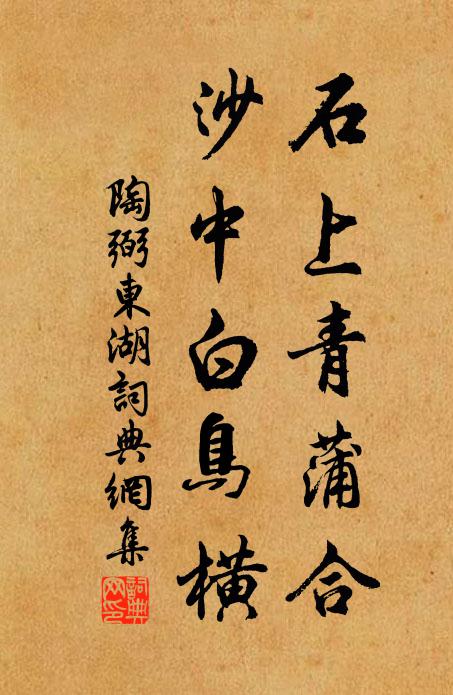 石上青蒲合
沙中白鳥橫
陶弼東湖詞典網集
詞典網印